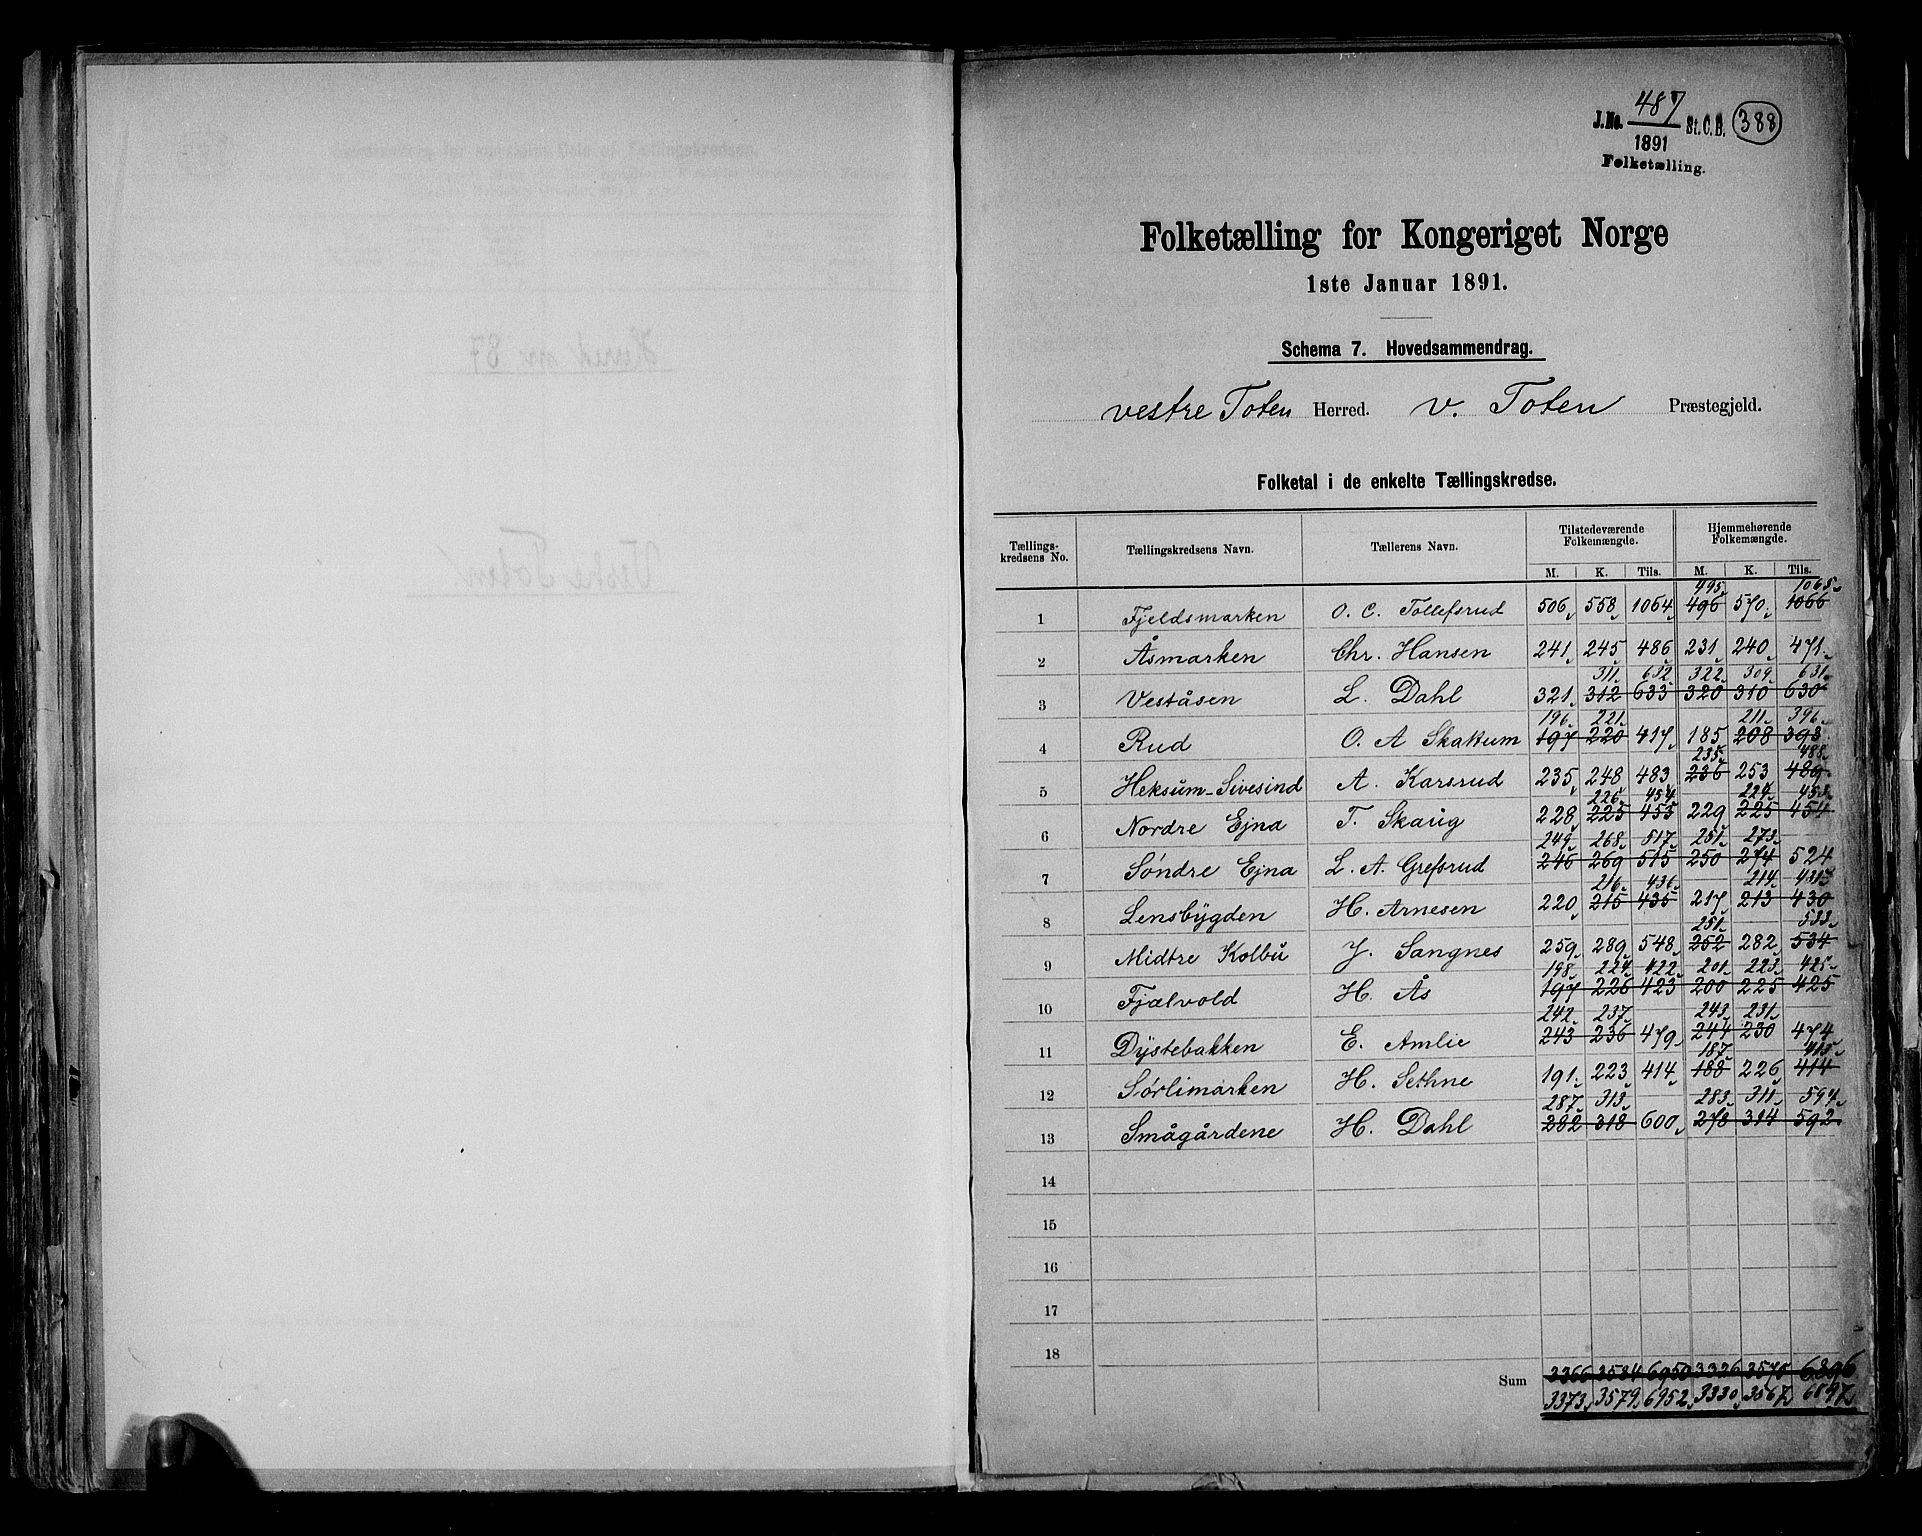 J.No. 487 St.C.B. 388
1891
Folketælling.
Folketælling for Kongeriget Norge
1ste Januar 1891.
Schema 7. Hovedsammendrag.
vestre Toten Herred. V. Toten Præstegjeld.
Folketal i de enkelte Tællingskredse.
Tællings-kredsens No. Tællingskredsens Navn. Tællerens Navn. Tilstedeværende Folkemængde. Hjemmehørende Folkemængde.
M. K. Tils. M. K. Tils.
495 1065
1 Fjeldsmarken O. C. Tollefsrud 506 558 1064 496 570 1066
2 Åsmarken Chr. Hansen 241 245 486 231 240 471
311 632 322 309 631
3 Veståsen L. Dahl 321 312 633 320 310 630
196 221 211 396
4 Rud O. A Skattum 197 220 417 185 208 393
235 488
5 Heksum-Sivesind A. Karsrud 235 248 483 236 253 489
226 454 224 453
6 Nordre Ejna T. Skaug 228 225 453 229 225 454
249 268 517 251 273
7 Søndre Ejna L. A. Grefsrud 246 269 515 250 274 524
216 436 214
8 Lensbygden H. Arnesen 220 215 435 217 213 430
251 533
9 Midtre Kolbu J. Sangnes 259 289 548 252 282 534
198 224 422 201 223 425
10 Fjælvold H. Ås 197 226 423 200 225 425
242 237 243 231
11 Dystebakken E. Amlie 243 236 479 244 230 474
187 413
12 Sørlimarken H. Sethne 191 223 414 188 226 414
287 313 283 311 594
13 Smågårdene H. Dahl 282 318 600 278 314 592
14
15
16
17
18
Sum 3366 3584 6950 3326 3570 6896
3373 3579 6952 3330 3567 6897
Herred nr 87
Vestre Toten